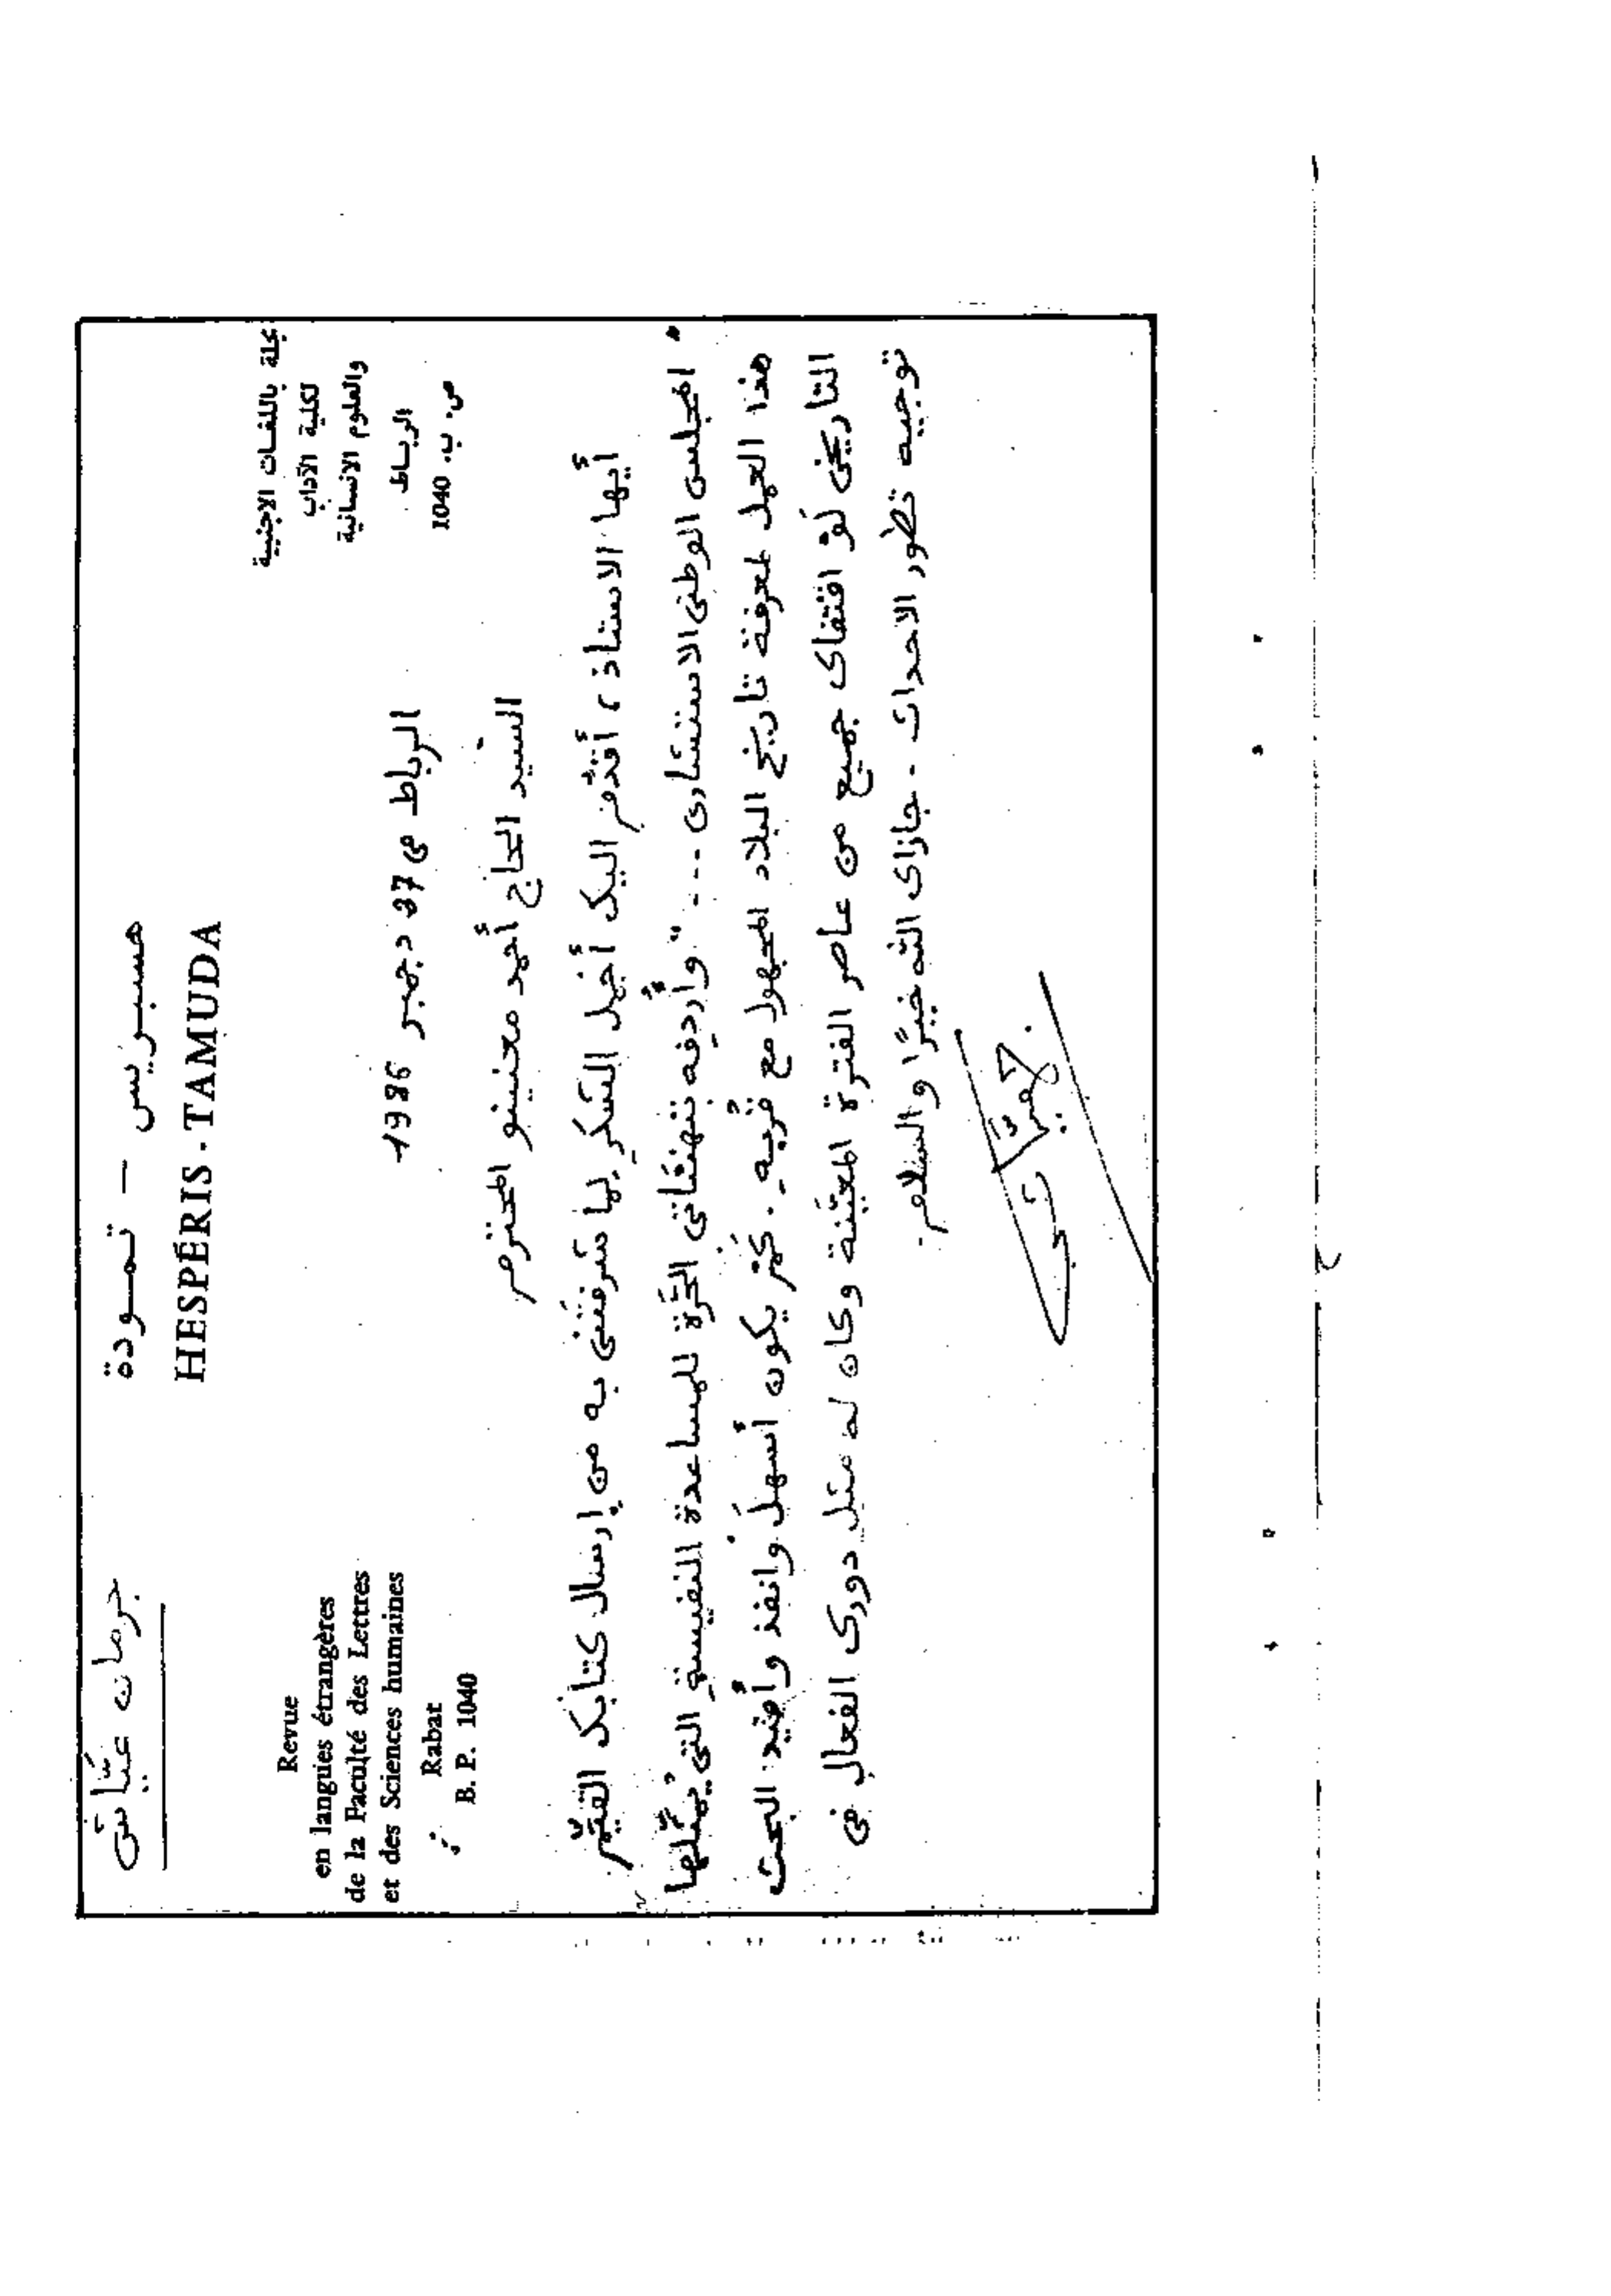 جرمان عيّاش
هسبريس – تمودة
HESPÉRIS - TAMUDA
مجلة باللغات الاجنبية
لكلية الآداب
والعلوم الانسانية
الرباط
ص. ب. 1040
Revue
en langues étrangères
de la Faculté des Lettres
et des Sciences humaines
Rabat
B. P. 1040
الرباط في 27 دجمبر 1986
السّيد الحاج أحمد معنينو المحترم
أيها الاستاذ، أقدّم اليك أجمل الشكر بما شرفتَني به من إرسال كتابك القيّم
"المجلس الوطني الاستشاري ---" وأُردِفه بتهنئاتي الحَرّة للمساعدة النفيسة التي يُمثّلها
هذا العمل لمعرفة تاريخ البلاد المجهول مع قُربِه. كَمْ يكون أسهلَ وانفذ وأفيد البحث
التاريخي لَوْ اقتفاك جميع من عاصر الفترة المعيّنة وكان له مثل دورك الفعال في
توجيه تطور الاحداث. جازاك الله خيرًا والسلام.